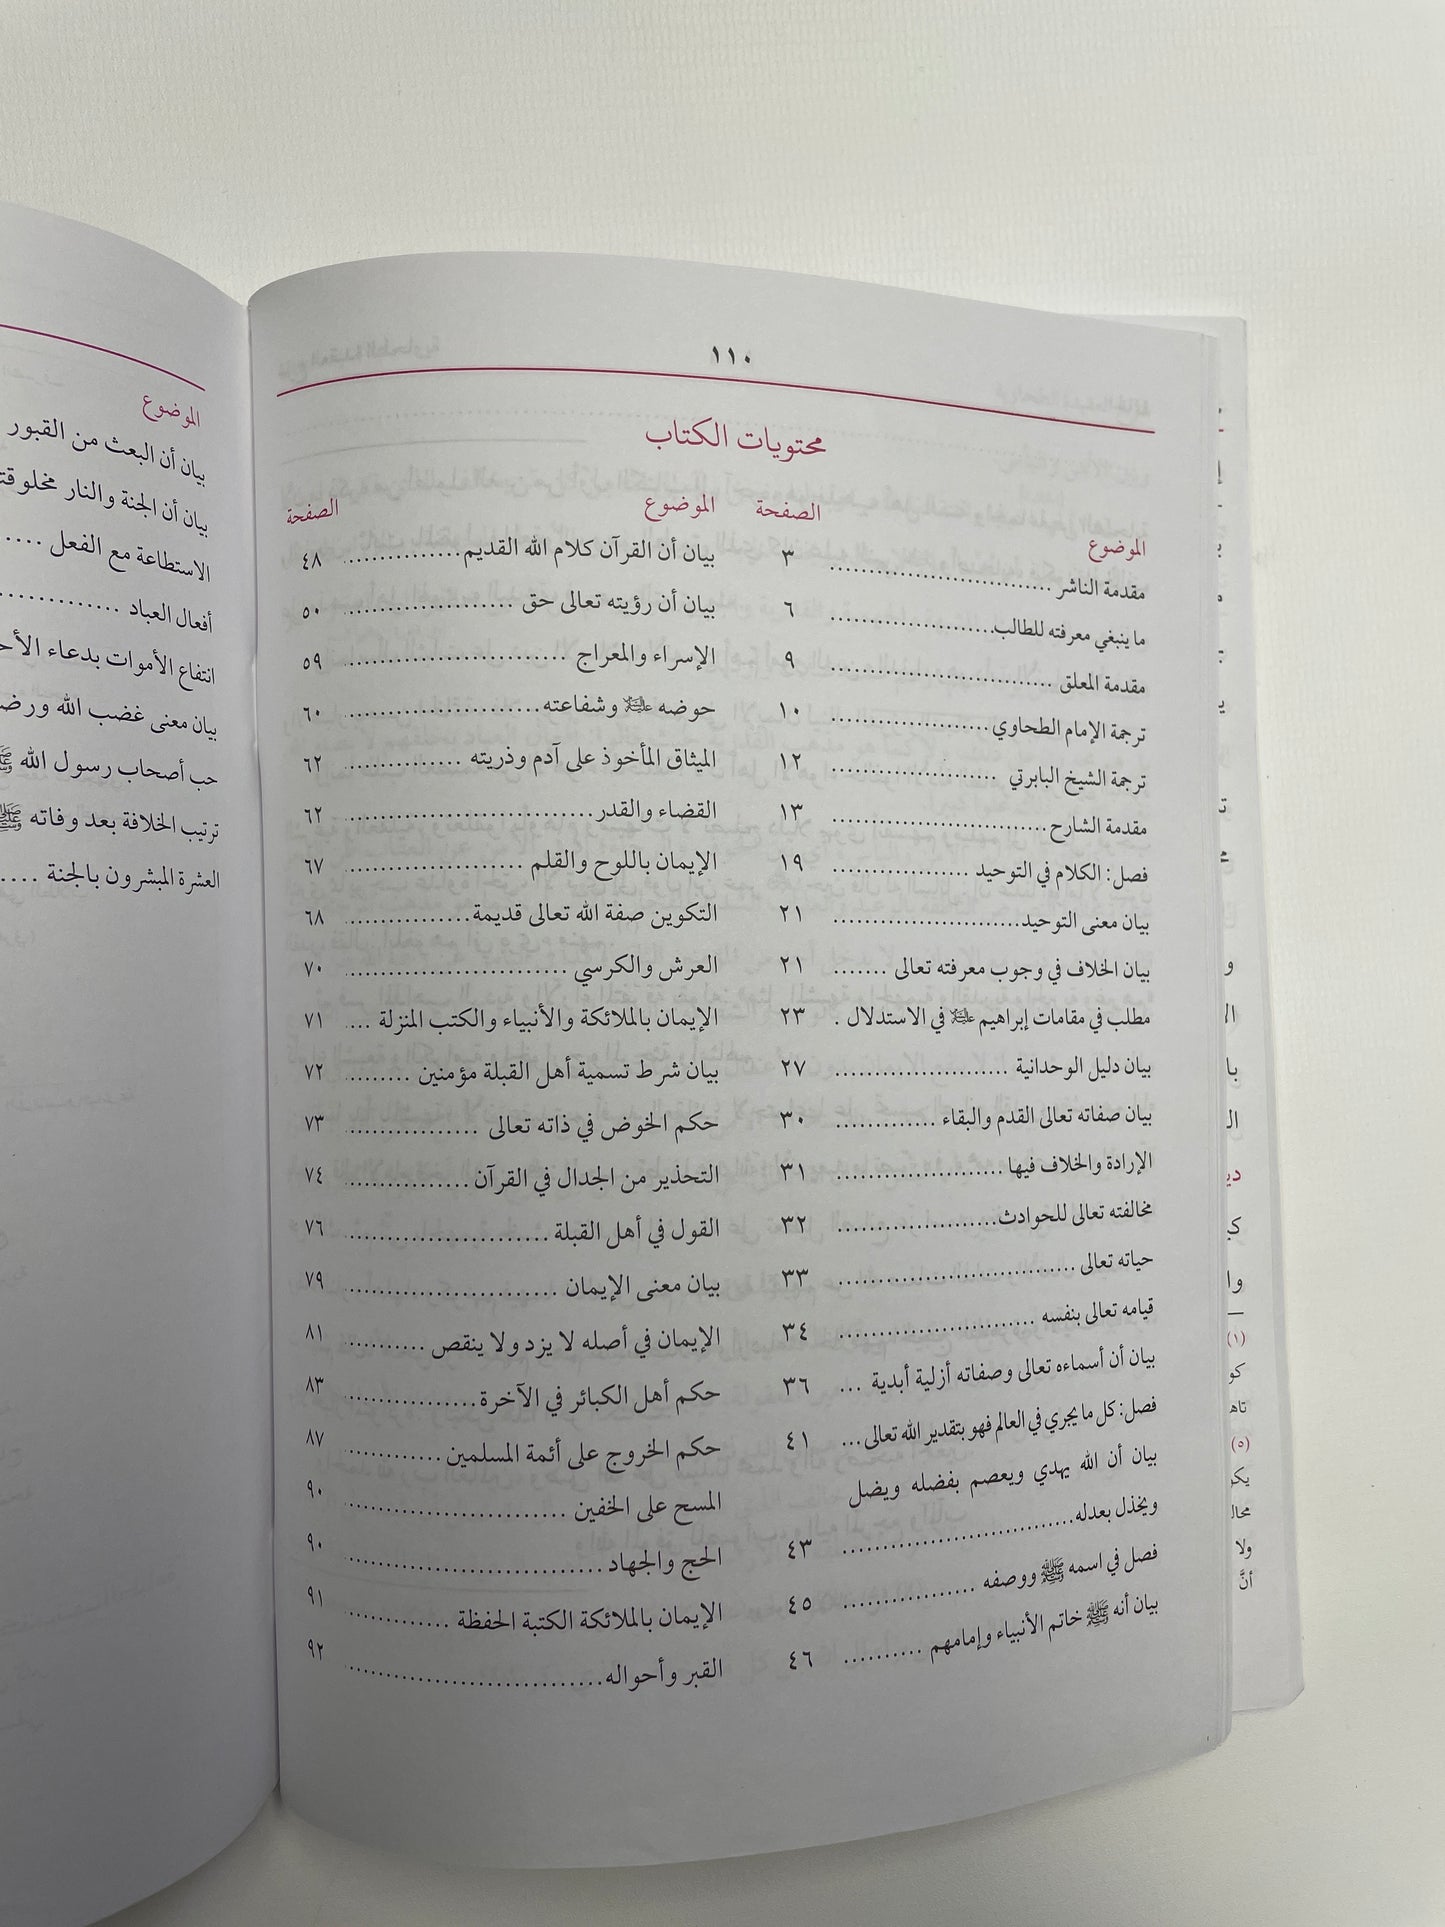 ١١٠
محتويات الكتاب
الموضوع الصفحة
مقدمة الناشر ........................ ٣
ما ينبغي معرفته للطالب.................. ٦
مقدمة المعلق ........................ ٩
ترجمة الإمام الطحاوي.................. ١٠
ترجمة الشيخ البابرتي .................. ١٢
مقدمة الشارح........................ ١٣
فصل: الكلام في التوحيد ............... ١٩
بيان معنى التوحيد..................... ٢١
بيان الخلاف في وجوب معرفته تعالى ....... ٢١
مطلب في مقامات إبراهيم عليه السلام في الاستدلال . ٢٣
بيان دليل الوحدانية ................... ٢٧
بيان صفاته تعالى القدم والبقاء ............. ٣٠
الإرادة والخلاف فيها ................... ٣١
مخالفته تعالى للحوادث.................. ٣٢
حياته تعالى .......................... ٣٣
قيامه تعالى بنفسه ...................... ٣٤
بيان أن أسماءه تعالى وصفاته أزلية أبدية ... ٣٦
فصل: كل ما يجري في العالم فهو بتقدير الله تعالى... ٤١
بيان أن الله يهدي ويعصم بفضله ويضل
ويخذل بعدله.......................... ٤٣
فصل في اسمه ﷺ ووصفه ................ ٤٥
بيان أنه ﷺ خاتم الأنبياء وإمامهم .......... ٤٦
الموضوع الصفحة
بيان أن القرآن كلام الله القديم............. ٤٨
بيان أن رؤيته تعالى حق .................. ٥٠
الإسراء والمعراج ........................ ٥٩
حوضه ﷺ وشفاعته...................... ٦٠
الميثاق المأخوذ على آدم وذريته ............ ٦٢
القضاء والقدر.......................... ٦٢
الإيمان باللوح والقلم .................... ٦٧
التكوين صفة الله تعالى قديمة.............. ٦٨
العرش والكرسي ........................ ٧٠
الإيمان بالملائكة والأنبياء والكتب المنزلة ... ٧١
بيان شرط تسمية أهل القبلة مؤمنين ......... ٧٢
حكم الخوض في ذاته تعالى ................ ٧٣
التحذير من الجدال في القرآن.............. ٧٤
القول في أهل القبلة ...................... ٧٦
بيان معنى الإيمان ........................ ٧٩
الإيمان في أصله لا يزد ولا ينقص ........... ٨١
حكم أهل الكبائر في الآخرة................ ٨٣
حكم الخروج على أئمة المسلمين ........... ٨٧
المسح على الخفين ...................... ٩٠
الحج والجهاد.......................... ٩٠
الإيمان بالملائكة الكتبة الحفظة ............ ٩١
القبر وأحواله............................ ٩٢
الموضوع
بيان أن البعث من القبور
بيان أن الجنة والنار
الاستطاعة مع الفعل ....
أفعال العباد ............
انتفاع الأموات بدعاء
بيان معنى غضب الله
حب أصحاب رسول الله
ترتيب الخلافة بعد وفاته ﷺ
العشرة المبشرون بالجنة ....